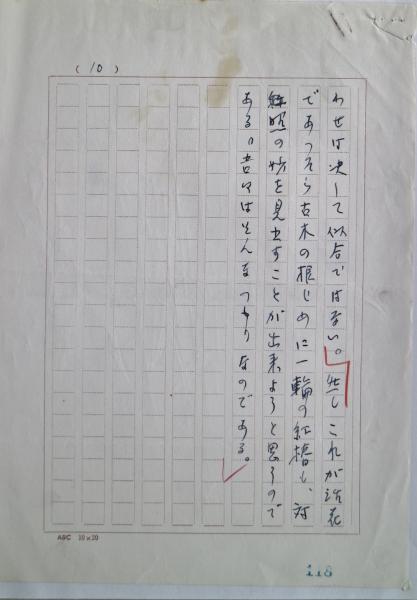 (10)
わせは決して似合ではない。然しこれが活花
であつたら古木の根じめに一輪の紅椿も、対
照の妙を見出すことが出来ようと思うので
ある。吾々はそんなつもりなのである。
ABC 20×20
118